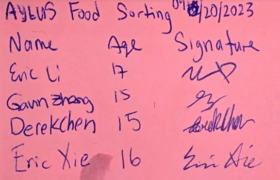 AYLUS Food Sorting 04/20/2023
Name Age Signature
Eric Li 17
Gavin Zhang 15
Derekchen 15 DerekChen
Eric Xie 16 Eric Xie